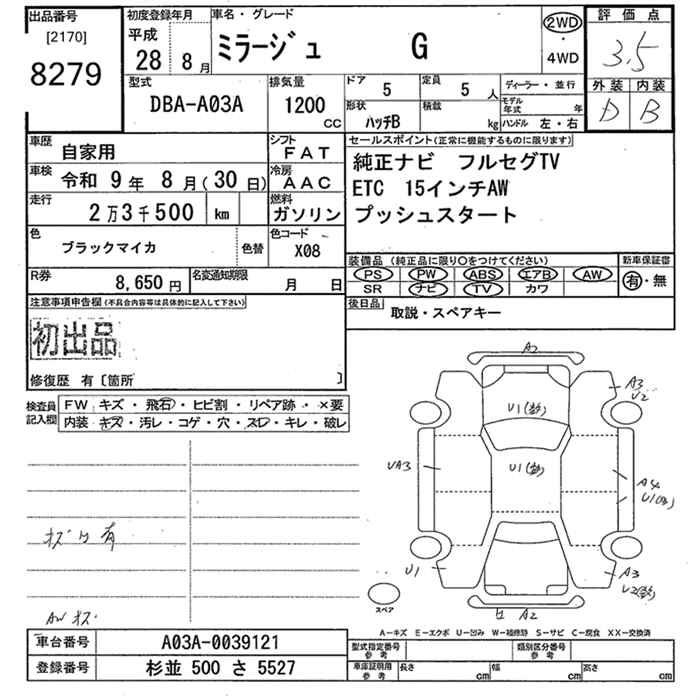 出品番号
[2170]
8279
初度登録年月
平成
28 8月
車名・グレード
ミラージュ G
2WD
・
4WD
評価点
3.5
外装 内装
D B
型式
DBA-A03A
排気量
1200
cc
ドア 5
定員 5 人
形状 ハッチB
積載 kg
ディーラー・並行
モデル年式 年
ハンドル 左・右
車歴 自家用
シフト FAT
車検 令和 9年 8月(30日)
冷房 AAC
走行 2万3千500 km
燃料 ガソリン
色 ブラックマイカ 色替
色コード X08
R券 8,650円
名変通知期限 月 日
セールスポイント(正常に機能するものに限ります)
純正ナビ フルセグTV
ETC 15インチAW
プッシュスタート
装備品(純正品に限り○をつけてください)
PS PW ABS エアB AW
SR ナビ TV カワ
新車保証書
有・無
後日品 取説・スペアキー
注意事項申告欄(不具合内容等は具体的に記入して下さい)
初出品
修復歴 有〔箇所 〕
検査員記入欄
FW キズ・飛石・ヒビ割・リペア跡・×要
内装 キズ・汚レ・コゲ・穴・スレ・キレ・破レ
有
AW キズ
A2
A3
U2
U1
U1
UA3
A4
U1
U1
A3
U2
A2
スペア
A-キズ E-エクボ U-凹み W-補修跡 S-サビ C-腐食 XX-交換済
車台番号 A03A-0039121
登録番号 杉並 500 さ 5527
型式指定番号 参考
類別区分番号 参考
車庫証明用 参考
長さ cm 幅 cm 高さ cm